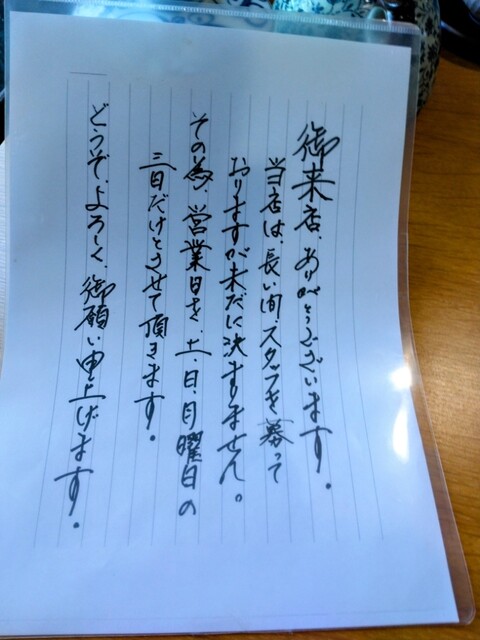 御来店、ありがとうございます。
当店は、長い間スタッフを募って
おりますが未だに決まりません。
その為、営業日を、土、日、月曜日の
三日だけとさせて頂きます。
どうぞ、よろしく、御願い申上げます。